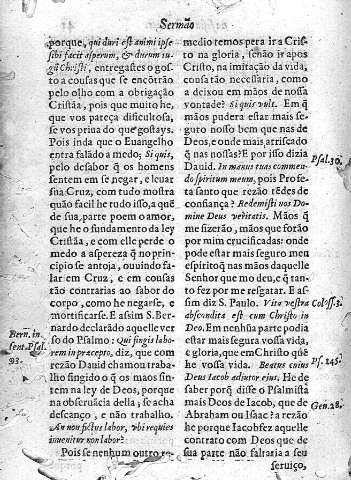 Sermão
porque, qui duri est animi ipse
sibi facit asperum, & durum iu-
gū Christi, entregastes o gos-
to a cousas que se encōtrão
pelo olho com a obrigação
Cristãa, pois que muito he,
que vos pareça dificultosa,
se vos priua do que gostays.
Pois inda que o Euangelho
entra falãdo a medo; Si quis,
pelo desabor q̄ os homens
sentem em se negar, e leuar
sua Cruz, com tudo mostra
quão facil he tudo isso, a quē
de sua, parte poem o amor,
que he o fundamento da ley
Cristãa, e com elle perde o
medo a aspereza q̄ no prin-
cipio se antoja, ouuindo fa-
lar em Cruz, e em cousas
tão contrarias ao sabor do
corpo, como he negarse, e
mortificarse. E assim S. Ber-
nardo declarãdo aquelle ver
so do Psalmo: Qui fingis labo-
rem in precepto, diz, que com
rezão Dauid chamou traba-
lho fingido o q̄ os maos sin-
tem na ley de Deos, porque
na obseruācia della, se acha
descanço, e não trabalho.
An non fictus labor, vbi requies
inuenitur non labor?
Pois se nenhum outro re-
Bern. in
sent. Psal.
93.
medio temos pera ir a Cris-
to na gloria, senão ir apos
Cristo, na imitação da vida,
cousa tão necessaria, como
a deixou em mãos de nossa
vontade? Si quis vult. Em q̄
mãos pudera estar mais se-
guro nosso bem que nas de
Deos, e onde mais arriscado
q̄ nas nossas? E por isso dizia
Dauid. In manus tuas commen-
do spiritum meum, pois Profe-
ta santo que rezão tēdes de
confiança? Redemisti nos Do-
mine Deus veritatis. Mãos q̄
me fizerão, mãos que forão
por mim crucificadas: onde
pode estar mais seguro meu
espirito q̄ nas mãos daquelle
Senhor que mo deu, e q̄ tan-
to fez por me resgatar. E as
sim diz S. Paulo. Vita vestra
abscondita est cum Christo in
Deo. Em nenhũa parte podia
estar mais segura vossa vida,
e gloria, que em Christo quē
he vossa vida. Beatus cuius
Deus Iacob adiutor eius. He de
saber porq̄ disse o Psalmista
mais Deos de Iacob, que de
Abraham ou Isaac? a rezão
he porque Iacob fez aquelle
contrato com Deos que de
sua parte não faltaria a seu
seruiço,
Psal. 30.
Coloss. 3.
Ps. 245.
Gen. 28.